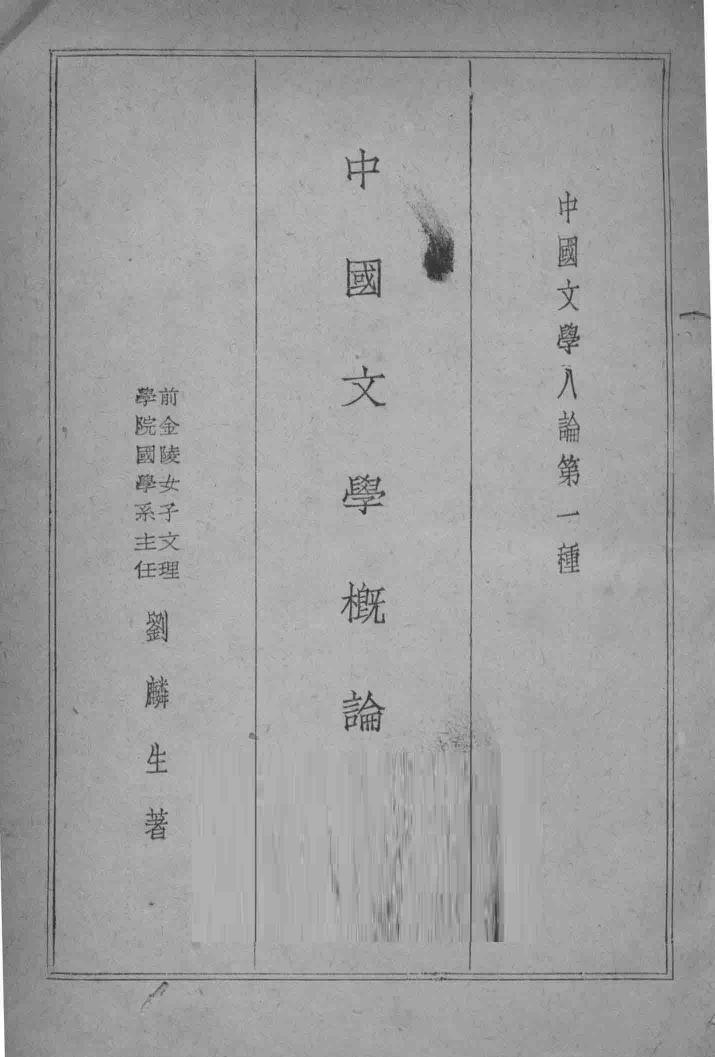 中國文學八論第一種
中國文學概論
前金陵女子文理
學院國學系主任
劉麟生著